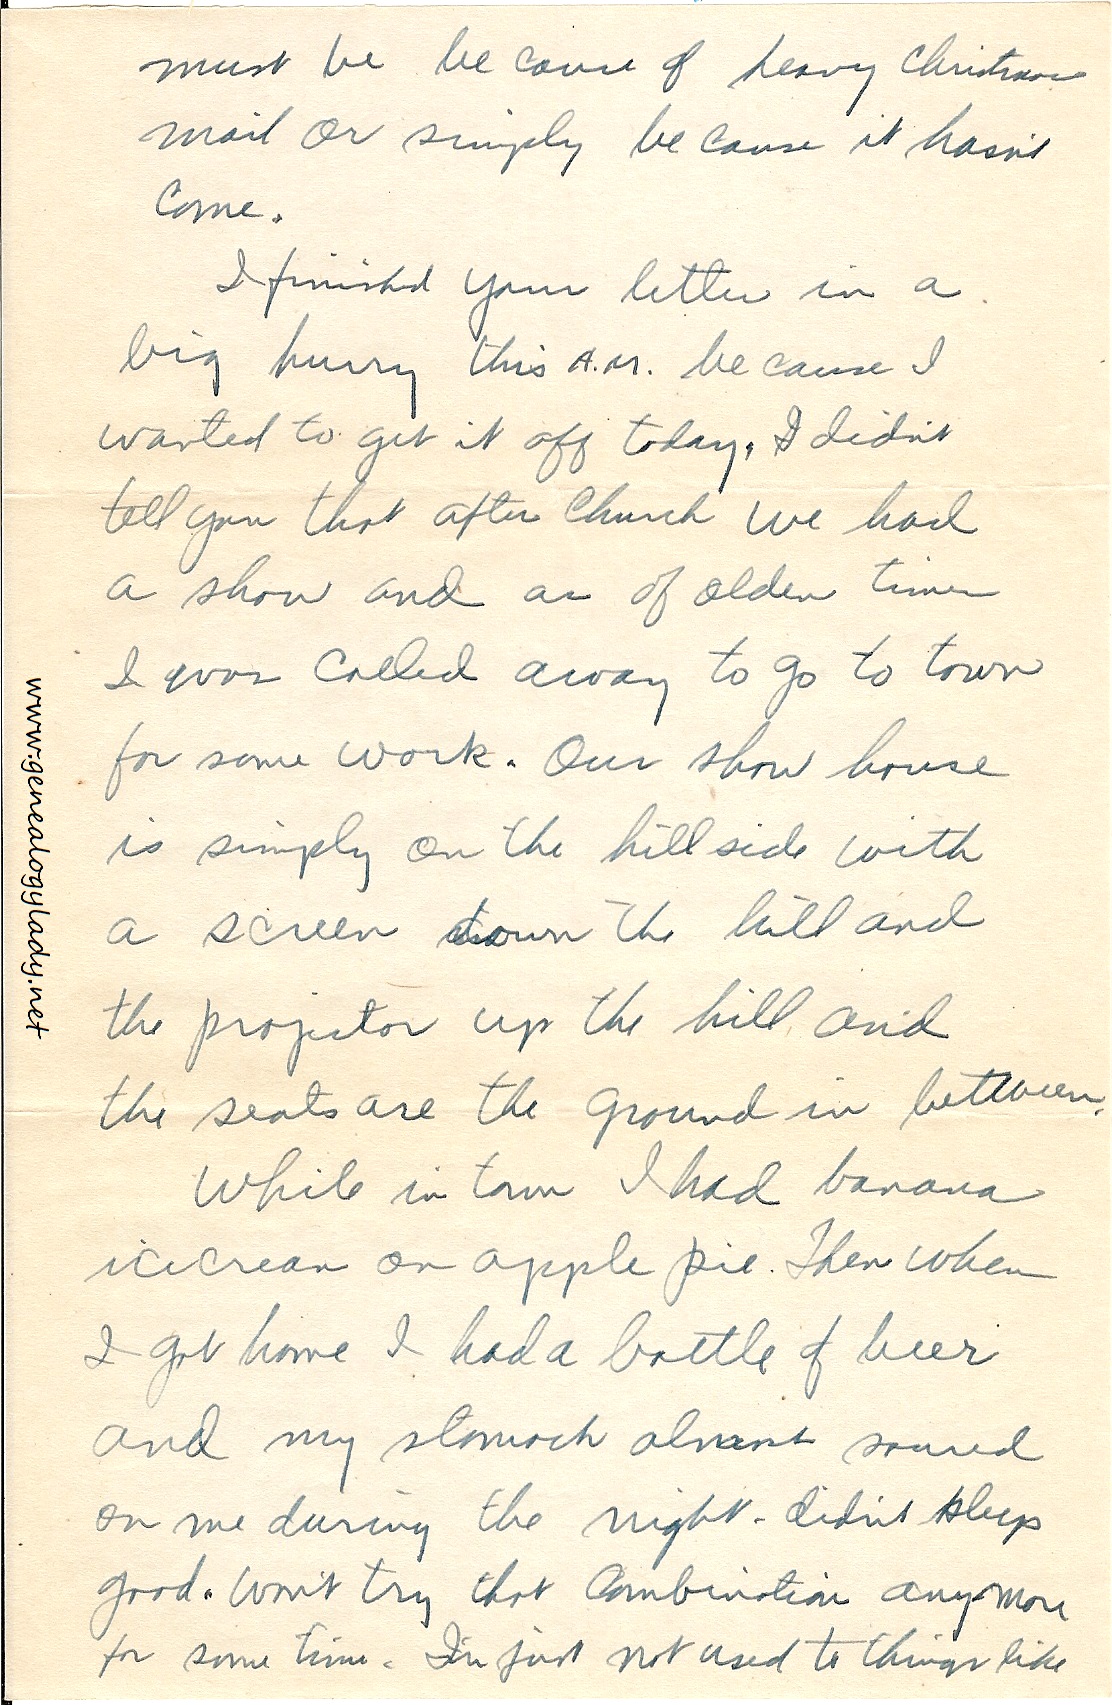 must be because of heavy Christmas
mail or simply because it hasn't
come.
I finished your letter in a
big hurry this A.M. because I
wanted to get it off today. I didn't
tell you that after Church we had
a show and as of olden times
I was called away to go to town
for some work. Our show house
is simply on the hillside with
a screen down the hill and
the projector up the hill and
the seats are the ground in between.
While in town I had banana
icecream on apple pie. Then when
I got home I had a bottle of beer
and my stomach almost soured
on me during the night - didn't sleep
good. Won't try that combination anymore
for some time. I'm just not used to things like
www.genealogylady.net